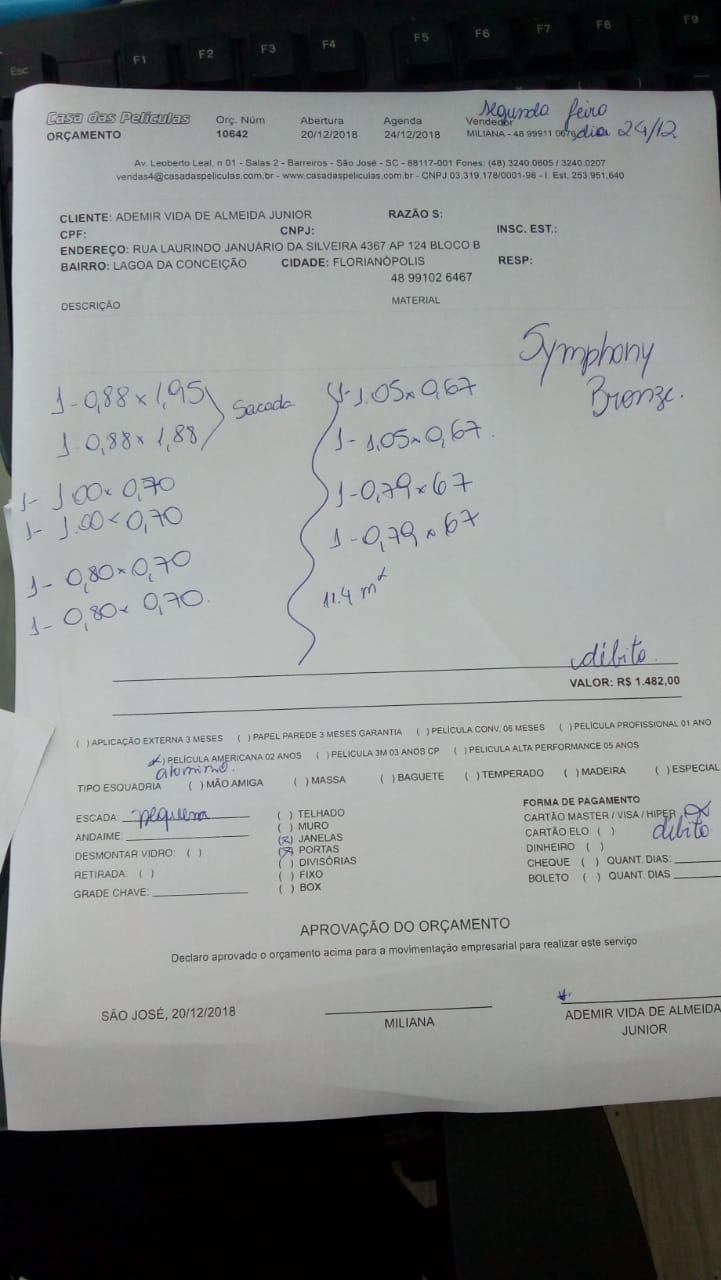 Esc F1 F2 F3 F4 F5 F6 F7 F8 F9
Casa das Películas
ORÇAMENTO
Orç. Núm
10642
Abertura
20/12/2018
Agenda
24/12/2018
Segunda feira
dia 24/12
Vendedor
MILIANA - 48 99911 0676
Av. Leoberto Leal, n 01 - Salas 2 - Barreiros - São José - SC - 88117-001 Fones: (48) 3240.0605 / 3240.0207
vendas4@casadaspeliculas.com.br - www.casadaspeliculas.com.br - CNPJ 03.319.178/0001-98 - I. Est. 253.951.640
CLIENTE: ADEMIR VIDA DE ALMEIDA JUNIOR RAZÃO S:
CPF: CNPJ: INSC. EST.:
ENDEREÇO: RUA LAURINDO JANUÁRIO DA SILVEIRA 4367 AP 124 BLOCO B
BAIRRO: LAGOA DA CONCEIÇÃO CIDADE: FLORIANÓPOLIS RESP:
48 99102 6467
DESCRIÇÃO MATERIAL
1-0,88×1,95
1-0,88×1,88
Sacada
1- 1.00×0,70
1- 1.00×0,70
1- 0,80×0,70
1- 0,80×0,70.
1-1.05×0,67
1-1,05×0,67.
1-0,79×67
1-0,79×67
11.4 m²
Symphony
Bronze.
débito.
VALOR: R$ 1.482,00
( ) APLICAÇÃO EXTERNA 3 MESES ( ) PAPEL PAREDE 3 MESES GARANTIA ( ) PELÍCULA CONV. 06 MESES ( ) PELÍCULA PROFISSIONAL 01 ANO
(x) PELÍCULA AMERICANA 02 ANOS ( ) PELICULA 3M 03 ANOS CP ( ) PELICULA ALTA PERFORMANCE 05 ANOS
aluminio.
TIPO ESQUADRIA ( ) MÃO AMIGA ( ) MASSA ( ) BAGUETE ( ) TEMPERADO ( ) MADEIRA ( ) ESPECIAL
ESCADA: pequena
ANDAIME:
DESMONTAR VIDRO: ( )
RETIRADA: ( )
GRADE CHAVE:
( ) TELHADO
( ) MURO
(x) JANELAS
(x) PORTAS
( ) DIVISÓRIAS
( ) FIXO
( ) BOX
FORMA DE PAGAMENTO
CARTÃO MASTER / VISA / HIPER (x)
CARTÃO ELO ( ) débito
DINHEIRO ( )
CHEQUE ( ) QUANT. DIAS:
BOLETO ( ) QUANT. DIAS
APROVAÇÃO DO ORÇAMENTO
Declaro aprovado o orçamento acima para a movimentação empresarial para realizar este serviço
SÃO JOSÉ, 20/12/2018
MILIANA
x
ADEMIR VIDA DE ALMEIDA
JUNIOR